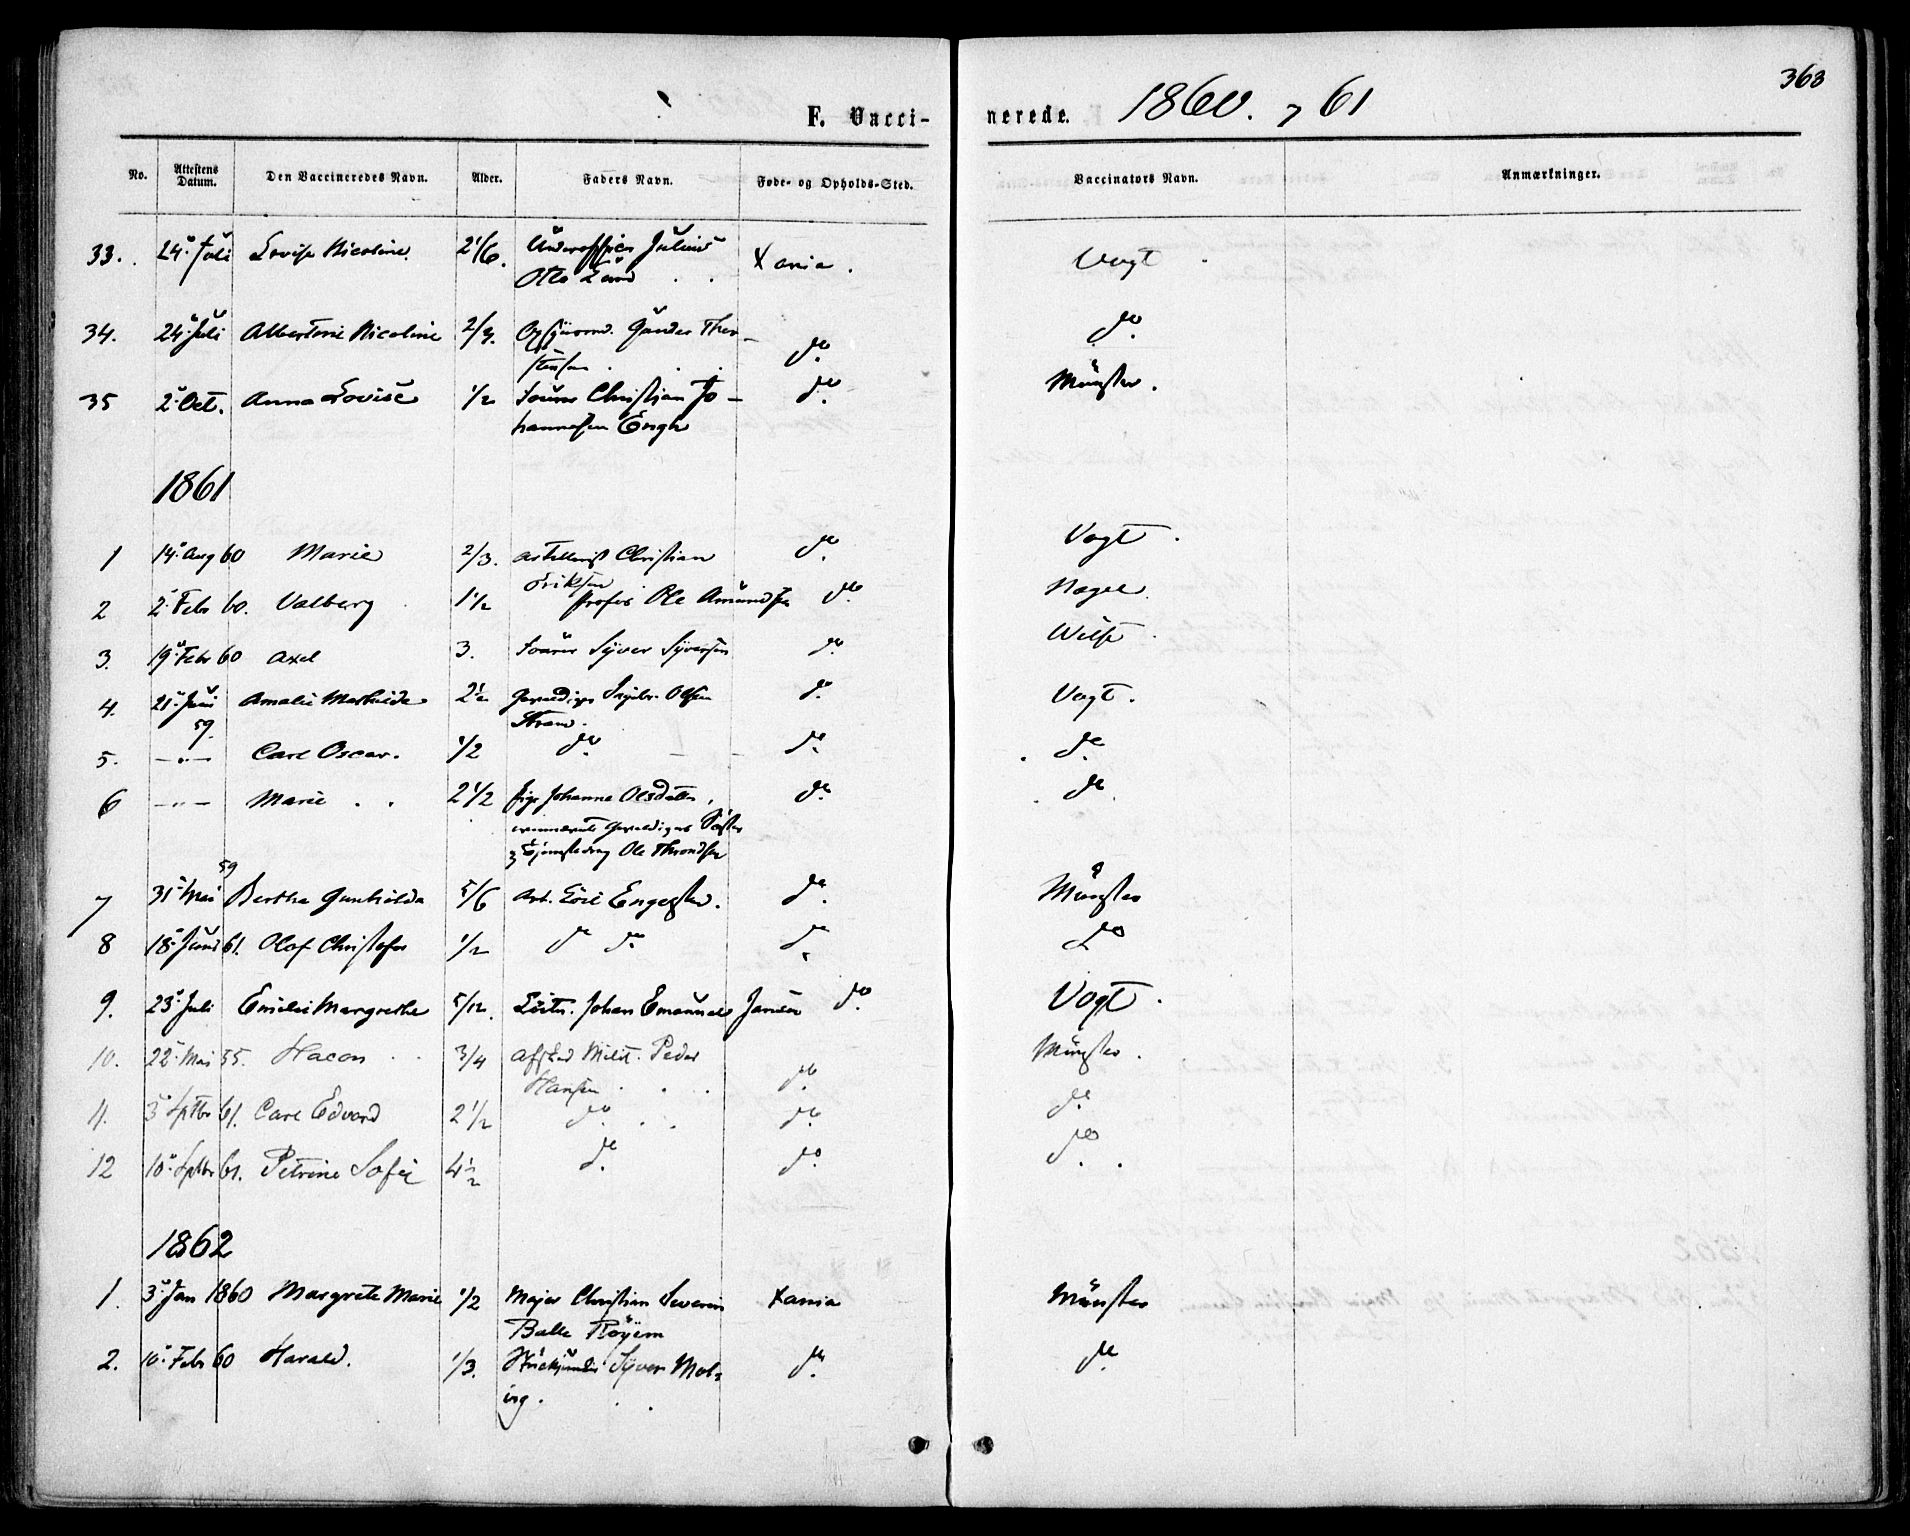 368
F. Vacci-
nerede. 1860. 61
No. Attestens Datum. Den Vaccineredes Navn. Alder. Faders Navn. Føde- og Opholds-Sted. Vaccinators Navn. Anmærkninger.
33. 24 Juli Lovise Nicoline 2 1/6. Underofficer Julius Xania. Vogt
Otto Lund
34. 24 Juli Albertine Nicoline 2/3. Gunder Thor- do. do.
stensen
35 2 Oct. Anna Lovise 1/2 Christian Jo- do. Münster.
hannesen Engh
1861
1 14 Aug 60 Marie 2/3. Artillerist Christian do. Vogt.
Eriksen
2 2 Febr 60. Valborg 1 1/2 Profos Ole Amundsen do. Nagel
3. 19 Febr 60 Axel 3. Syver Syversen do. Wilse
4. 21 Juni 59. Amalie Mathilde 2 1/2 Gevaldiger Olsen do. Vogt.
Strand.
5. -"- Carl Oscar. 1/2 do. do. do.
6 -"- Marie 2 1/2 Pige Johanna Olsdatter, do. do.
Gevaldigers Søster
Ole Throndsen
7 31 Mai 59 Bertha Gunhilda 5/6 Arb. Engester. do. Münster
8 18 Juni 61. Olof Christofer 1/2 do do. do. do
9. 23 Juli Emilie Margrethe 5/12. Löitn. Johan Emanuel Jansen do. Vogt.
10. 22 Mai 55. Hacon 3/4 Afsked Milit. Peder Münster.
Hansen do.
11. 3 Septbr 61. Carl Edvard 2 1/2 do. do. do.
12 10 Septbr 61. Petrine Sofie 4 1/2 do. do. do.
1862
1. 3 Jan 1860 Margrete Marie 1/2 Major Christian Severin Xania Münster
Balle Röyem
2. 10 Febr 60 Harald. 1/3. Syver Mol- do. do.